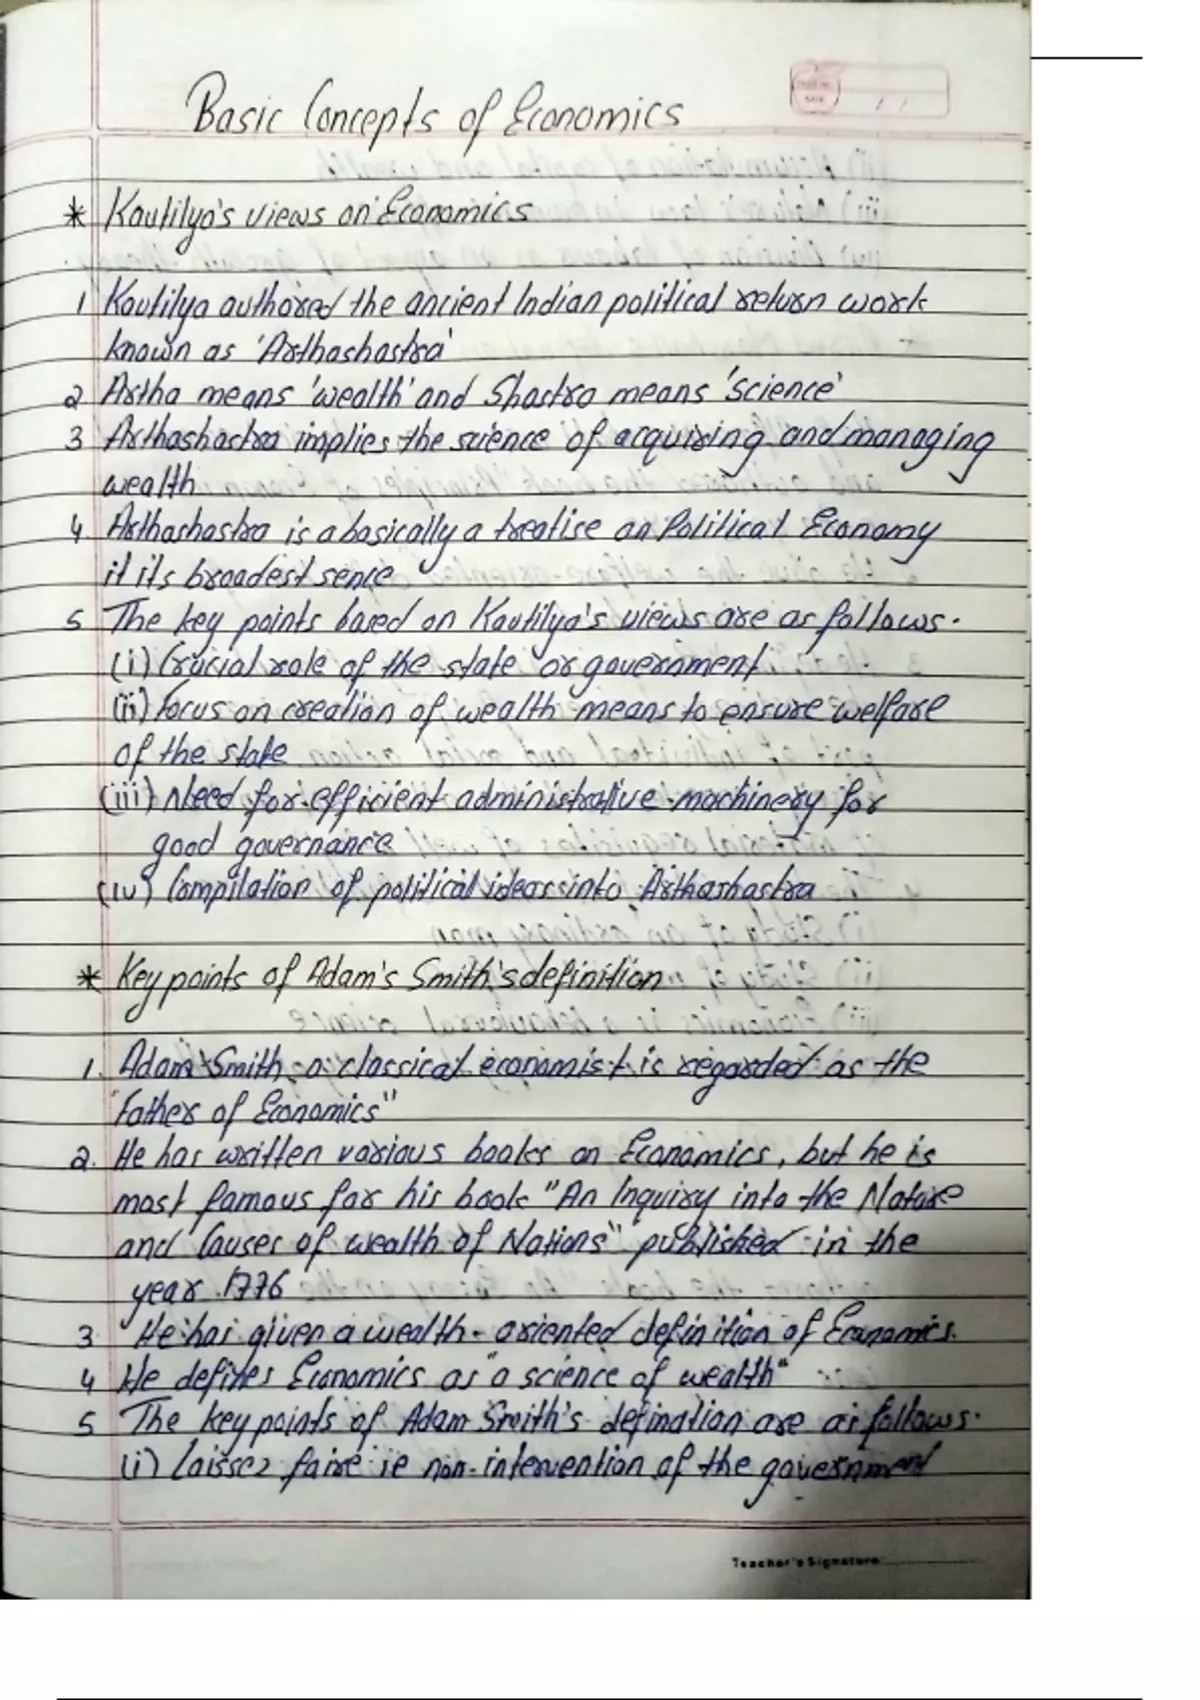 Basic Concepts of Economics
* Kautilya's views on Economics
1 Kautilya authored the ancient Indian political return work
known as 'Arthashastra'
2 Artha means 'wealth' and Shastra means 'science'
3 Arthashastra implies the science of acquiring and managing
wealth
4. Arthashastra is a basically a treatise on Political Economy
it its broadest sence
5 The key points based on Kautilya's views are as follows.
(i) Crucial role of the state or government
(ii) Focus on creation of wealth means to ensure welfare
of the state
(iii) Need for efficient administrative machinery for
good governance
(iv) Compilation of political ideas into Arthashastra
* Key points of Adam's Smith's definition
1. Adam Smith, a classical economist is regarded as the
"Father of Economics"
2. He has written various books on Economics, but he is
most famous for his book "An Inquiry into the Nature
and Causes of wealth of Nations" published in the
year 1776
3 He has given a wealth-oriented definition of Economics.
4 He defines Economics as "a science of wealth"
5 The key points of Adam Smith's defination are as follows.
(i) Laissez faire ie non-intervention of the government
Teacher's Signature: